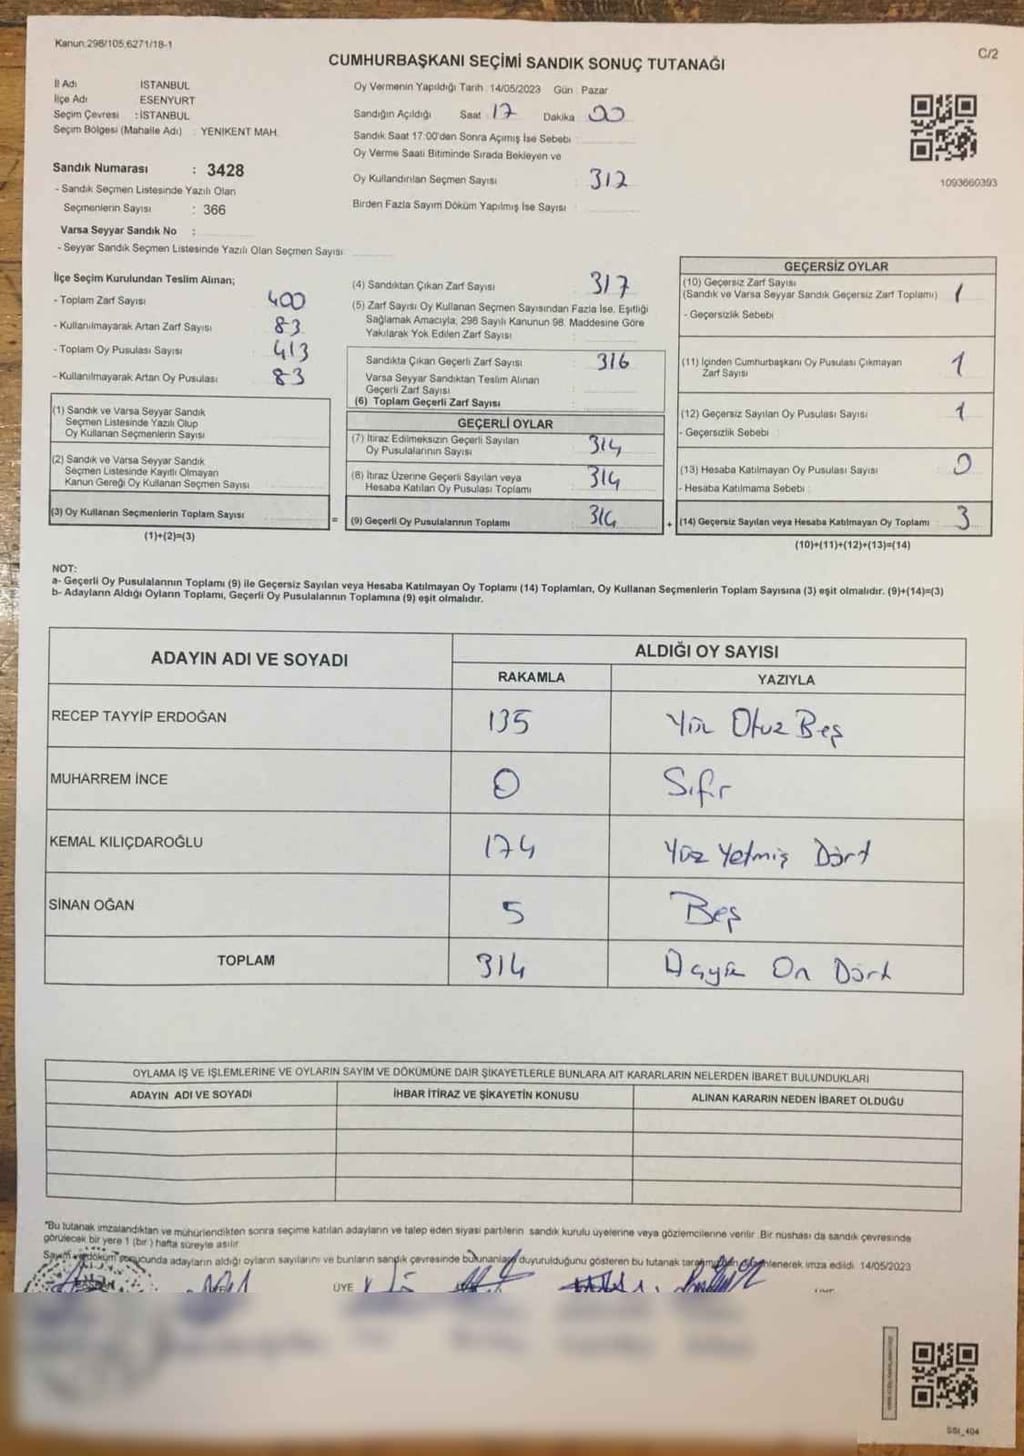 Kanun:298/105,6271/18-1
C/2
CUMHURBAŞKANI SEÇİMİ SANDIK SONUÇ TUTANAĞI
İl Adı İSTANBUL
İlçe Adı ESENYURT
Seçim Çevresi : İSTANBUL
Seçim Bölgesi (Mahalle Adı) : YENIKENT MAH.
Sandık Numarası : 3428
- Sandık Seçmen Listesinde Yazılı Olan
Seçmenlerin Sayısı : 366
Varsa Seyyar Sandık No :
- Seyyar Sandık Seçmen Listesinde Yazılı Olan Seçmen Sayısı
Oy Vermenin Yapıldığı Tarih : 14/05/2023 Gün : Pazar
Sandığın Açıldığı Saat 17 Dakika 00
Sandık Saat 17:00'den Sonra Açımış İse Sebebi
Oy Verme Saati Bitiminde Sırada Bekleyen ve
Oy Kullandırılan Seçmen Sayısı 312
Birden Fazla Sayım Döküm Yapılmış İse Sayısı
1093660393
İlçe Seçim Kurulundan Teslim Alınan;
- Toplam Zarf Sayısı 400
- Kullanılmayarak Artan Zarf Sayısı 83
- Toplam Oy Pusulası Sayısı 413
- Kullanılmayarak Artan Oy Pusulası 83
(1) Sandık ve Varsa Seyyar Sandık
Seçmen Listesinde Yazılı Olup
Oy Kullanan Seçmenlerin Sayısı
(2) Sandık ve Varsa Seyyar Sandık
Seçmen Listesinde Kayıtlı Olmayan
Kanun Gereği Oy Kullanan Seçmen Sayısı
(3) Oy Kullanan Seçmenlerin Toplam Sayısı
(1)+(2)=(3)
(4) Sandıktan Çıkan Zarf Sayısı 317
(5) Zarf Sayısı Oy Kullanan Seçmen Sayısından Fazla İse, Eşitliği
Sağlamak Amacıyla; 298 Sayılı Kanunun 98. Maddesine Göre
Yakılarak Yok Edilen Zarf Sayısı
Sandıkta Çıkan Geçerli Zarf Sayısı 316
Varsa Seyyar Sandıktan Teslim Alınan
Geçerli Zarf Sayısı
(6) Toplam Geçerli Zarf Sayısı
GEÇERLİ OYLAR
(7) İtiraz Edilmeksizin Geçerli Sayılan
Oy Pusulalarının Sayısı 314
(8) İtiraz Üzerine Geçerli Sayılan veya
Hesaba Katılan Oy Pusulası Toplamı 314
= (9) Geçerli Oy Pusulalarının Toplamı 314
GEÇERSİZ OYLAR
(10) Geçersiz Zarf Sayısı
(Sandık ve Varsa Seyyar Sandık Geçersiz Zarf Toplamı) 1
- Geçersizlik Sebebi
(11) İçinden Cumhurbaşkanı Oy Pusulası Çıkmayan
Zarf Sayısı 1
(12) Geçersiz Sayılan Oy Pusulası Sayısı 1
- Geçersizlik Sebebi
(13) Hesaba Katılmayan Oy Pusulası Sayısı 0
- Hesaba Katılmama Sebebi
+ (14) Geçersiz Sayılan veya Hesaba Katılmayan Oy Toplamı 3
(10)+(11)+(12)+(13)=(14)
NOT:
a- Geçerli Oy Pusulalarının Toplamı (9) ile Geçersiz Sayılan veya Hesaba Katılmayan Oy Toplamı (14) Toplamları, Oy Kullanan Seçmenlerin Toplam Sayısına (3) eşit olmalıdır. (9)+(14)=(3)
b- Adayların Aldığı Oyların Toplamı, Geçerli Oy Pusulalarının Toplamına (9) eşit olmalıdır.
ADAYIN ADI VE SOYADI
ALDIĞI OY SAYISI
RAKAMLA YAZIYLA
RECEP TAYYİP ERDOĞAN 135 Yüz Otuz Beş
MUHARREM İNCE 0 Sıfır
KEMAL KILIÇDAROĞLU 174 Yüz Yetmiş Dört
SİNAN OĞAN 5 Beş
TOPLAM 314 On Dört
OYLAMA İŞ VE İŞLEMLERİNE VE OYLARIN SAYIM VE DÖKÜMÜNE DAİR ŞİKAYETLERLE BUNLARA AİT KARARLARIN NELERDEN İBARET BULUNDUKLARI
ADAYIN ADI VE SOYADI İHBAR İTİRAZ VE ŞİKAYETİN KONUSU ALINAN KARARIN NEDEN İBARET OLDUĞU
*Bu tutanak imzalandıktan ve mühürlendikten sonra seçime katılan adayların ve talep eden siyasi partilerin sandık kurulu üyelerine veya gözlemcilerine verilir. Bir nüshası da sandık çevresinde
görülecek bir yere 1 (bir) hafta süreyle asılır.
adayların aldığı oyların sayılarını ve bunların sandık çevresinde duyurulduğunu gösteren bu tutanak imza edildi. 14/05/2023
ÜYE
SSI_404